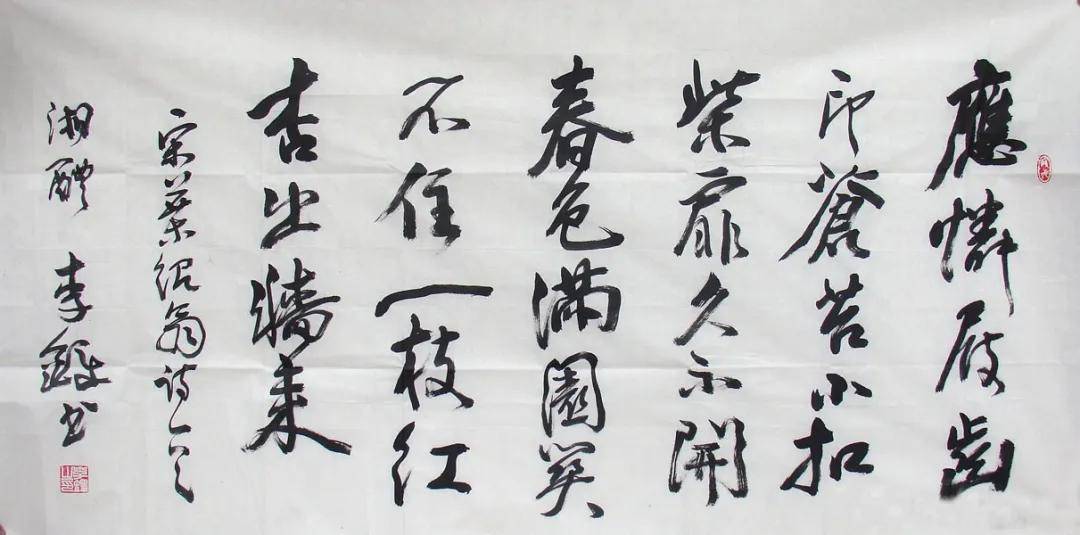 應憐屐齒
印蒼苔小扣
柴扉久不開
春色滿園关
不住一枝紅
杏出牆来
宋葉紹翁詩一首
湘醴 李書